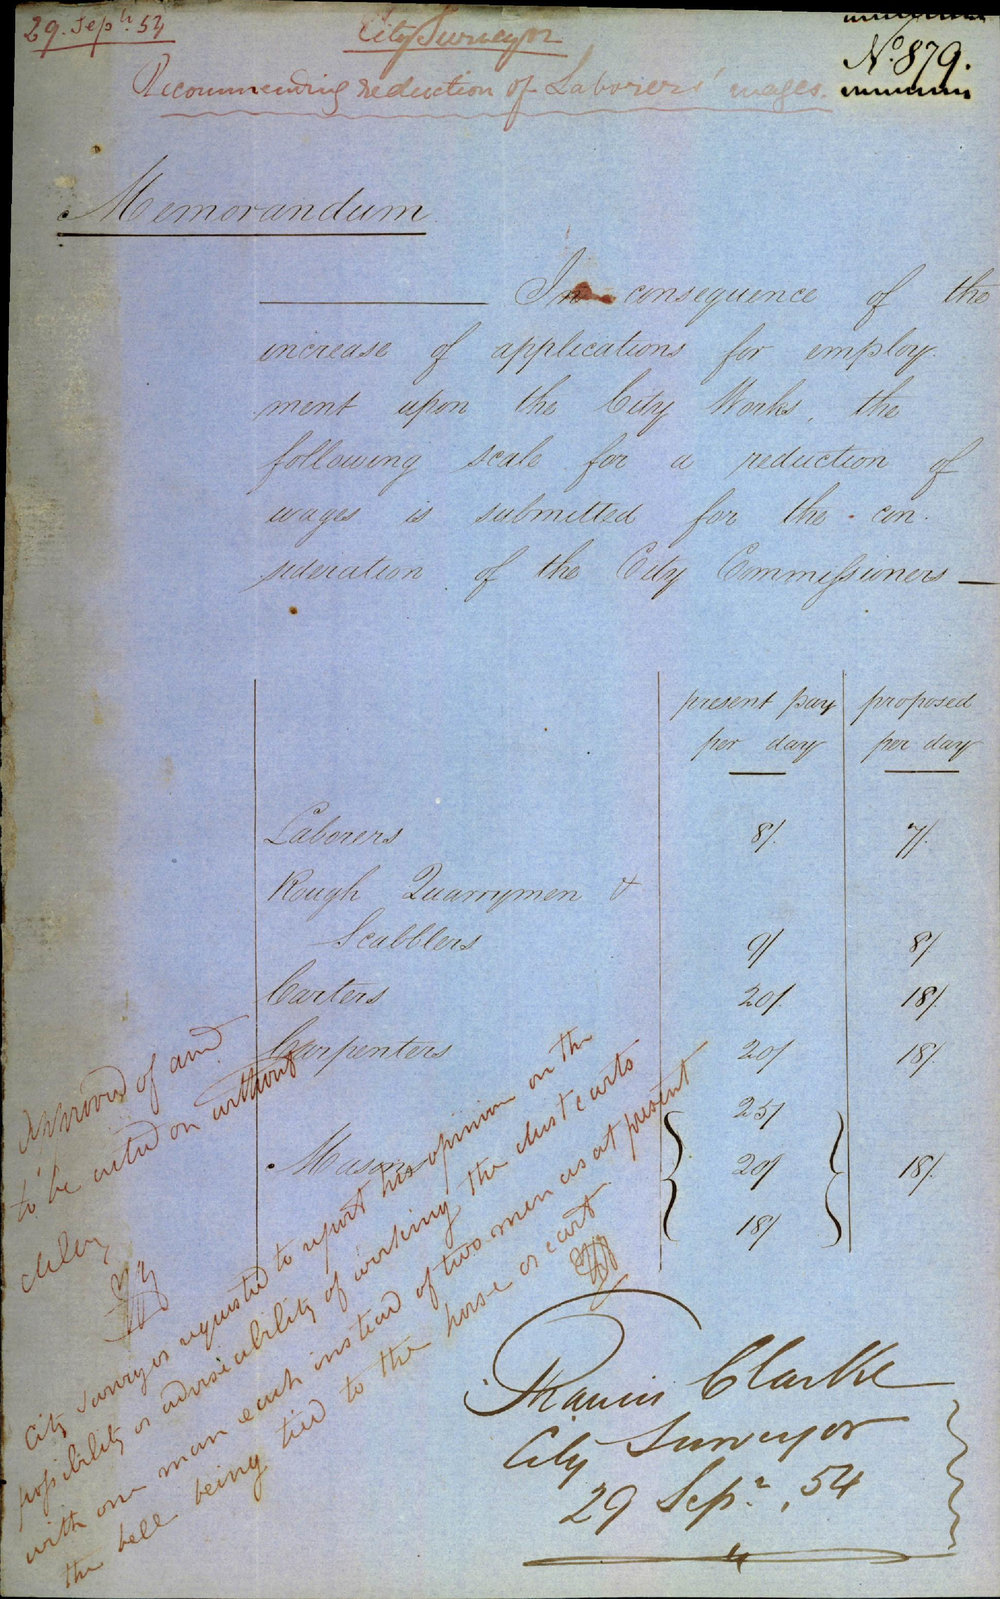 29. Septr. 54
City Surveyor
No. 879.
Recommending reduction of Laborers' wages.
Memorandum
In consequence of the
increase of applications for employ-
ment upon the City Works, the
following scale for a reduction of
wages is submitted for the con-
sideration of the City Commissioners —
present pay proposed
per day per day
Laborers 8/. 7/.
Rough Quarrymen &
Scabblers 9/ 8/
Carters 20/. 18/.
Carpenters 20/ 18/.
25/
Masons 20/ 18/.
18/
Approved of and
to be acted on without
delay
City Surveyor requested to report his opinion on the
possibility or adviseability of working the dust carts
with one man each instead of two men as at present
the bell being tied to the horse or cart
Francis Clarke
City Surveyor
29 Sepr., 54